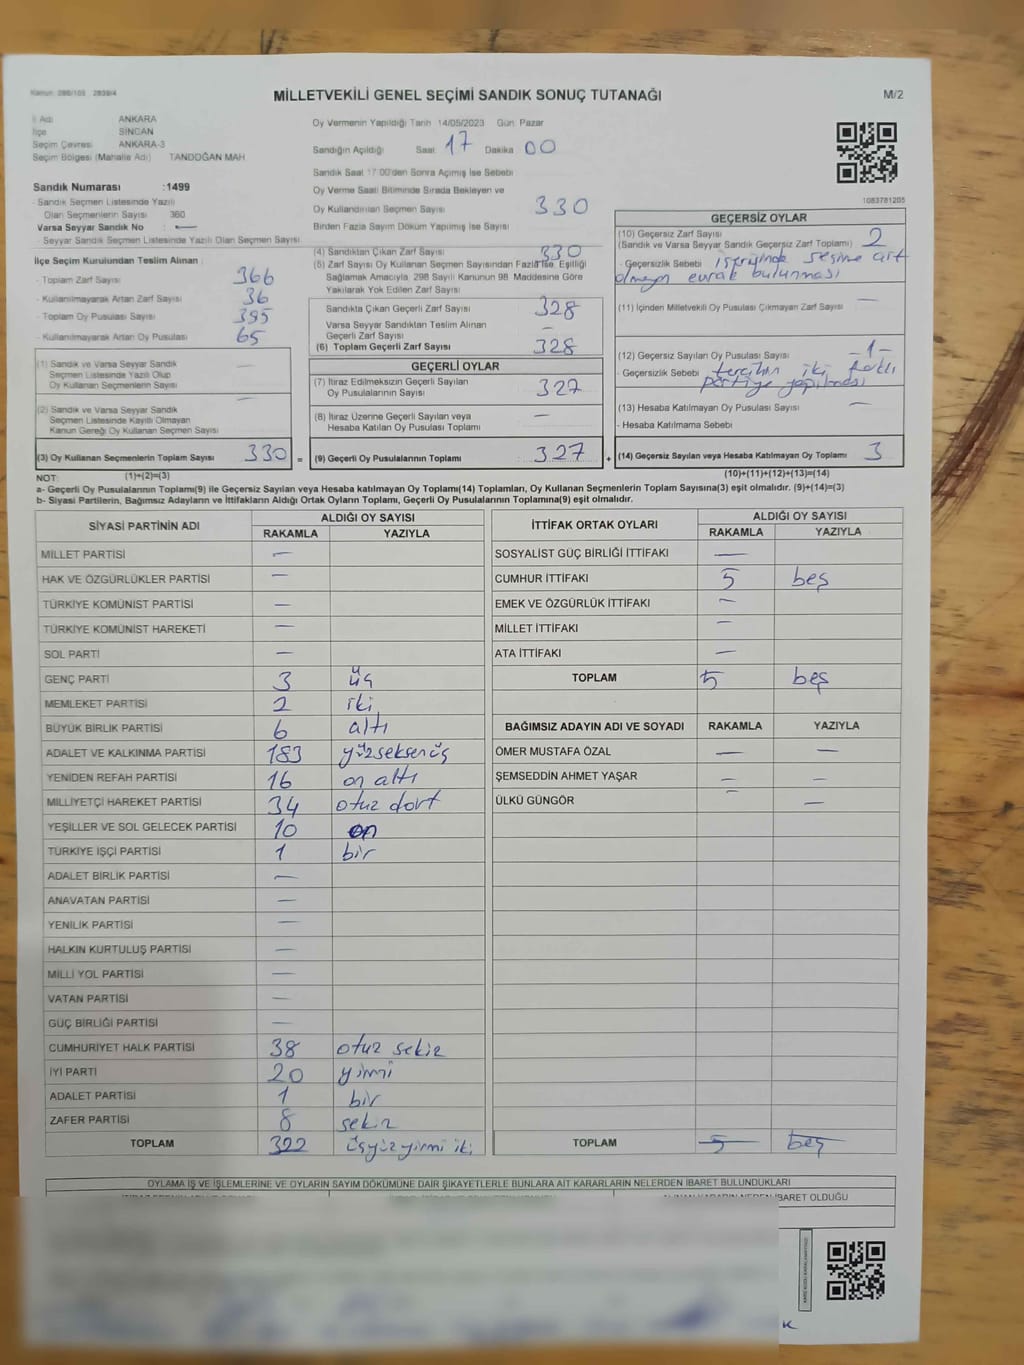 Kanun: 298/105 2839/4
MİLLETVEKİLİ GENEL SEÇİMİ SANDIK SONUÇ TUTANAĞI
M/2
İl Adı ANKARA
İlçe SİNCAN
Seçim Çevresi ANKARA-3
Seçim Bölgesi (Mahalle Adı) TANDOĞAN MAH.
Sandık Numarası :1499
- Sandık Seçmen Listesinde Yazılı
Olan Seçmenlerin Sayısı 360
Varsa Seyyar Sandık No : —
Seyyar Sandık Seçmen Listesinde Yazılı Olan Seçmen Sayısı
İlçe Seçim Kurulundan Teslim Alınan :
- Toplam Zarf Sayısı 366
- Kullanılmayarak Artan Zarf Sayısı 36
- Toplam Oy Pusulası Sayısı 395
- Kullanılmayarak Artan Oy Pusulası 65
(1) Sandık ve Varsa Seyyar Sandık —
Seçmen Listesinde Yazılı Olup
Oy Kullanan Seçmenlerin Sayısı
(2) Sandık ve Varsa Seyyar Sandık —
Seçmen Listesinde Kayıtlı Olmayan
Kanun Gereği Oy Kullanan Seçmen Sayısı
(3) Oy Kullanan Seçmenlerin Toplam Sayısı 330 =
Oy Vermenin Yapıldığı Tarih 14/05/2023 Gün Pazar
Sandığın Açıldığı Saat 17 Dakika 00
Sandık Saat 17:00'den Sonra Açımış İse Sebebi
Oy Verme Saati Bitiminde Sırada Bekleyen ve
Oy Kullandırılan Seçmen Sayısı 330
Birden Fazla Sayım Döküm Yapılmış İse Sayısı
(4) Sandıktan Çıkan Zarf Sayısı 330
(5) Zarf Sayısı Oy Kullanan Seçmen Sayısından Fazla İse, Eşitliği
Sağlamak Amacıyla, 298 Sayılı Kanunun 98. Maddesine Göre
Yakılarak Yok Edilen Zarf Sayısı
Sandıkta Çıkan Geçerli Zarf Sayısı 328
Varsa Seyyar Sandıktan Teslim Alınan
Geçerli Zarf Sayısı —
(6) Toplam Geçerli Zarf Sayısı 328
GEÇERLİ OYLAR
(7) İtiraz Edilmeksizin Geçerli Sayılan
Oy Pusulasının Sayısı 327
(8) İtiraz Üzerine Geçerli Sayılan veya —
Hesaba Katılan Oy Pusulası Toplamı
(9) Geçerli Oy Pusulalarının Toplamı 327 +
1083781205
GEÇERSİZ OYLAR
(10) Geçersiz Zarf Sayısı 2
(Sandık ve Varsa Seyyar Sandık Geçersiz Zarf Toplamı)
- Geçersizlik Sebebi içerisinde seçime ait
olmayan evrak bulunması
(11) İçinden Milletvekili Oy Pusulası Çıkmayan Zarf Sayısı —
(12) Geçersiz Sayılan Oy Pusulası Sayısı -1-
- Geçersizlik Sebebi tercihin iki farklı
partiye yapılması
(13) Hesaba Katılmayan Oy Pusulası Sayısı —
- Hesaba Katılmama Sebebi
(14) Geçersiz Sayılan veya Hesaba Katılmayan Oy Toplamı 3
NOT: (1)+(2)=(3) (10)+(11)+(12)+(13)=(14)
a- Geçerli Oy Pusulalarının Toplamı(9) ile Geçersiz Sayılan veya Hesaba katılmayan Oy Toplamı(14) Toplamları, Oy Kullanan Seçmenlerin Toplam Sayısına(3) eşit olmalıdır. (9)+(14)=(3)
b- Siyasi Partilerin, Bağımsız Adayların ve İttifakların Aldığı Ortak Oyların Toplamı, Geçerli Oy Pusulalarının Toplamına(9) eşit olmalıdır.
SİYASİ PARTİNİN ADI ALDIĞI OY SAYISI
RAKAMLA YAZIYLA
MİLLET PARTİSİ —
HAK VE ÖZGÜRLÜKLER PARTİSİ —
TÜRKİYE KOMÜNİST PARTİSİ —
TÜRKİYE KOMÜNİST HAREKETİ —
SOL PARTİ —
GENÇ PARTİ 3 üç
MEMLEKET PARTİSİ 2 iki
BÜYÜK BİRLİK PARTİSİ 6 altı
ADALET VE KALKINMA PARTİSİ 183 yüzseksenüç
YENİDEN REFAH PARTİSİ 16 on altı
MİLLİYETÇİ HAREKET PARTİSİ 34 otuz dört
YEŞİLLER VE SOL GELECEK PARTİSİ 10 on
TÜRKİYE İŞÇİ PARTİSİ 1 bir
ADALET BİRLİK PARTİSİ —
ANAVATAN PARTİSİ —
YENİLİK PARTİSİ —
HALKIN KURTULUŞ PARTİSİ —
MİLLİ YOL PARTİSİ —
VATAN PARTİSİ —
GÜÇ BİRLİĞİ PARTİSİ —
CUMHURİYET HALK PARTİSİ 38 otuz sekiz
İYİ PARTİ 20 yirmi
ADALET PARTİSİ 1 bir
ZAFER PARTİSİ 8 sekiz
TOPLAM 322 üçyüzyirmi iki
İTTİFAK ORTAK OYLARI ALDIĞI OY SAYISI
RAKAMLA YAZIYLA
SOSYALİST GÜÇ BİRLİĞİ İTTİFAKI —
CUMHUR İTTİFAKI 5 beş
EMEK VE ÖZGÜRLÜK İTTİFAKI —
MİLLET İTTİFAKI —
ATA İTTİFAKI —
TOPLAM 5 beş
BAĞIMSIZ ADAYIN ADI VE SOYADI RAKAMLA YAZIYLA
ÖMER MUSTAFA ÖZAL — —
ŞEMSEDDİN AHMET YAŞAR — —
ÜLKÜ GÜNGÖR — —
TOPLAM 5 beş
OYLAMA İŞ VE İŞLEMLERİNE VE OYLARIN SAYIM DÖKÜMÜNE DAİR ŞİKAYETLERLE BUNLARA AİT KARARLARIN NELERDEN İBARET BULUNDUKLARI
ALINAN KARARIN NEDEN İBARET OLDUĞU
K